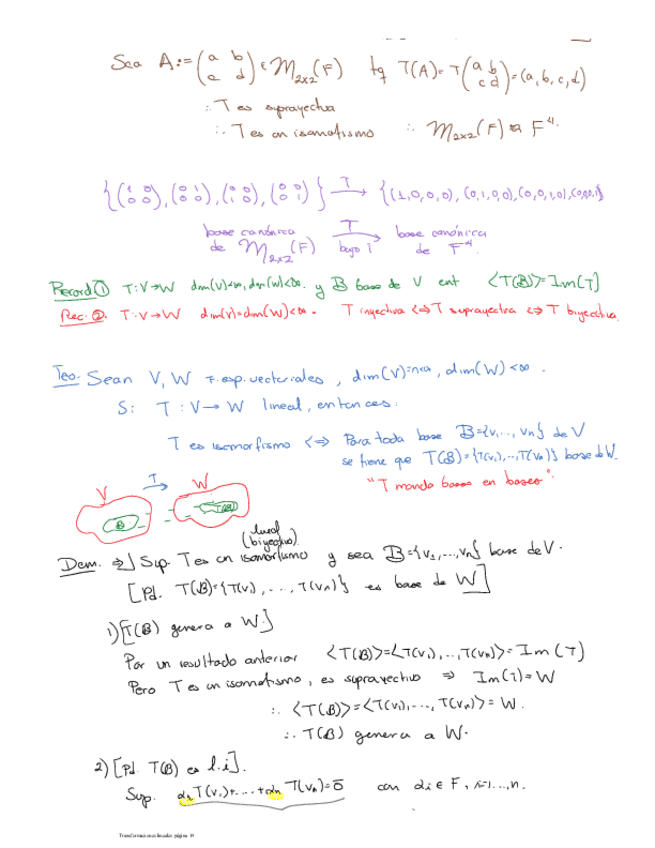 Sea A:=(a b / c d) ∈ M₂ₓ₂(F) tq T(A)=T(a b / c d)=(a,b,c,d)
∴ T es suprayectiva
∴ T es un isomorfismo ∴ M₂ₓ₂(F) ≅ F⁴.
{(1 0 / 0 0),(0 1 / 0 0),(0 0 / 1 0),(0 0 / 0 1)} T→ {(1,0,0,0),(0,1,0,0),(0,0,1,0),(0,0,0,1)}
base canónica T→ base canónica
de M₂ₓ₂(F) bajo T de F⁴.
Record ① T:V→W dim(V)<∞, dim(W)<∞. y B base de V ent <T(B)>=Im(T)
Rec. ②. T:V→W dim(V)=dim(W)<∞. T inyectiva <=> T suprayectiva <=> T biyectiva.
Teo. Sean V, W F-esp. vectoriales, dim(V)=n<∞, dim(W)<∞.
S: T:V→W lineal, entonces:
T es isomorfismo <=> Para toda base B={v₁,...,vₙ} de V
se tiene que T(B)={T(v₁),...,T(vₙ)} base de W.
"T manda bases en bases".
V T→ W
B T(B)
lineal
(biyectivo)
Dem. ⇒] Sup. T es un isomorfismo y sea B={v₁,...,vₙ} base de V.
[Pd. T(B)={T(v₁),...,T(vₙ)} es base de W]
1) [T(B) genera a W.]
Por un resultado anterior <T(B)>=<T(v₁),...,T(vₙ)>=Im(T)
Pero T es un isomorfismo, es suprayectivo ⇒ Im(T)=W
∴ <T(B)>=<T(v₁),...,T(vₙ)>=W.
∴ T(B) genera a W.
2) [Pd. T(B) es l.i].
Sup. α₁T(v₁)+...+αₙT(vₙ)=0̄ con αᵢ∈F, i=1...,n.
Transformaciones lineales página 19